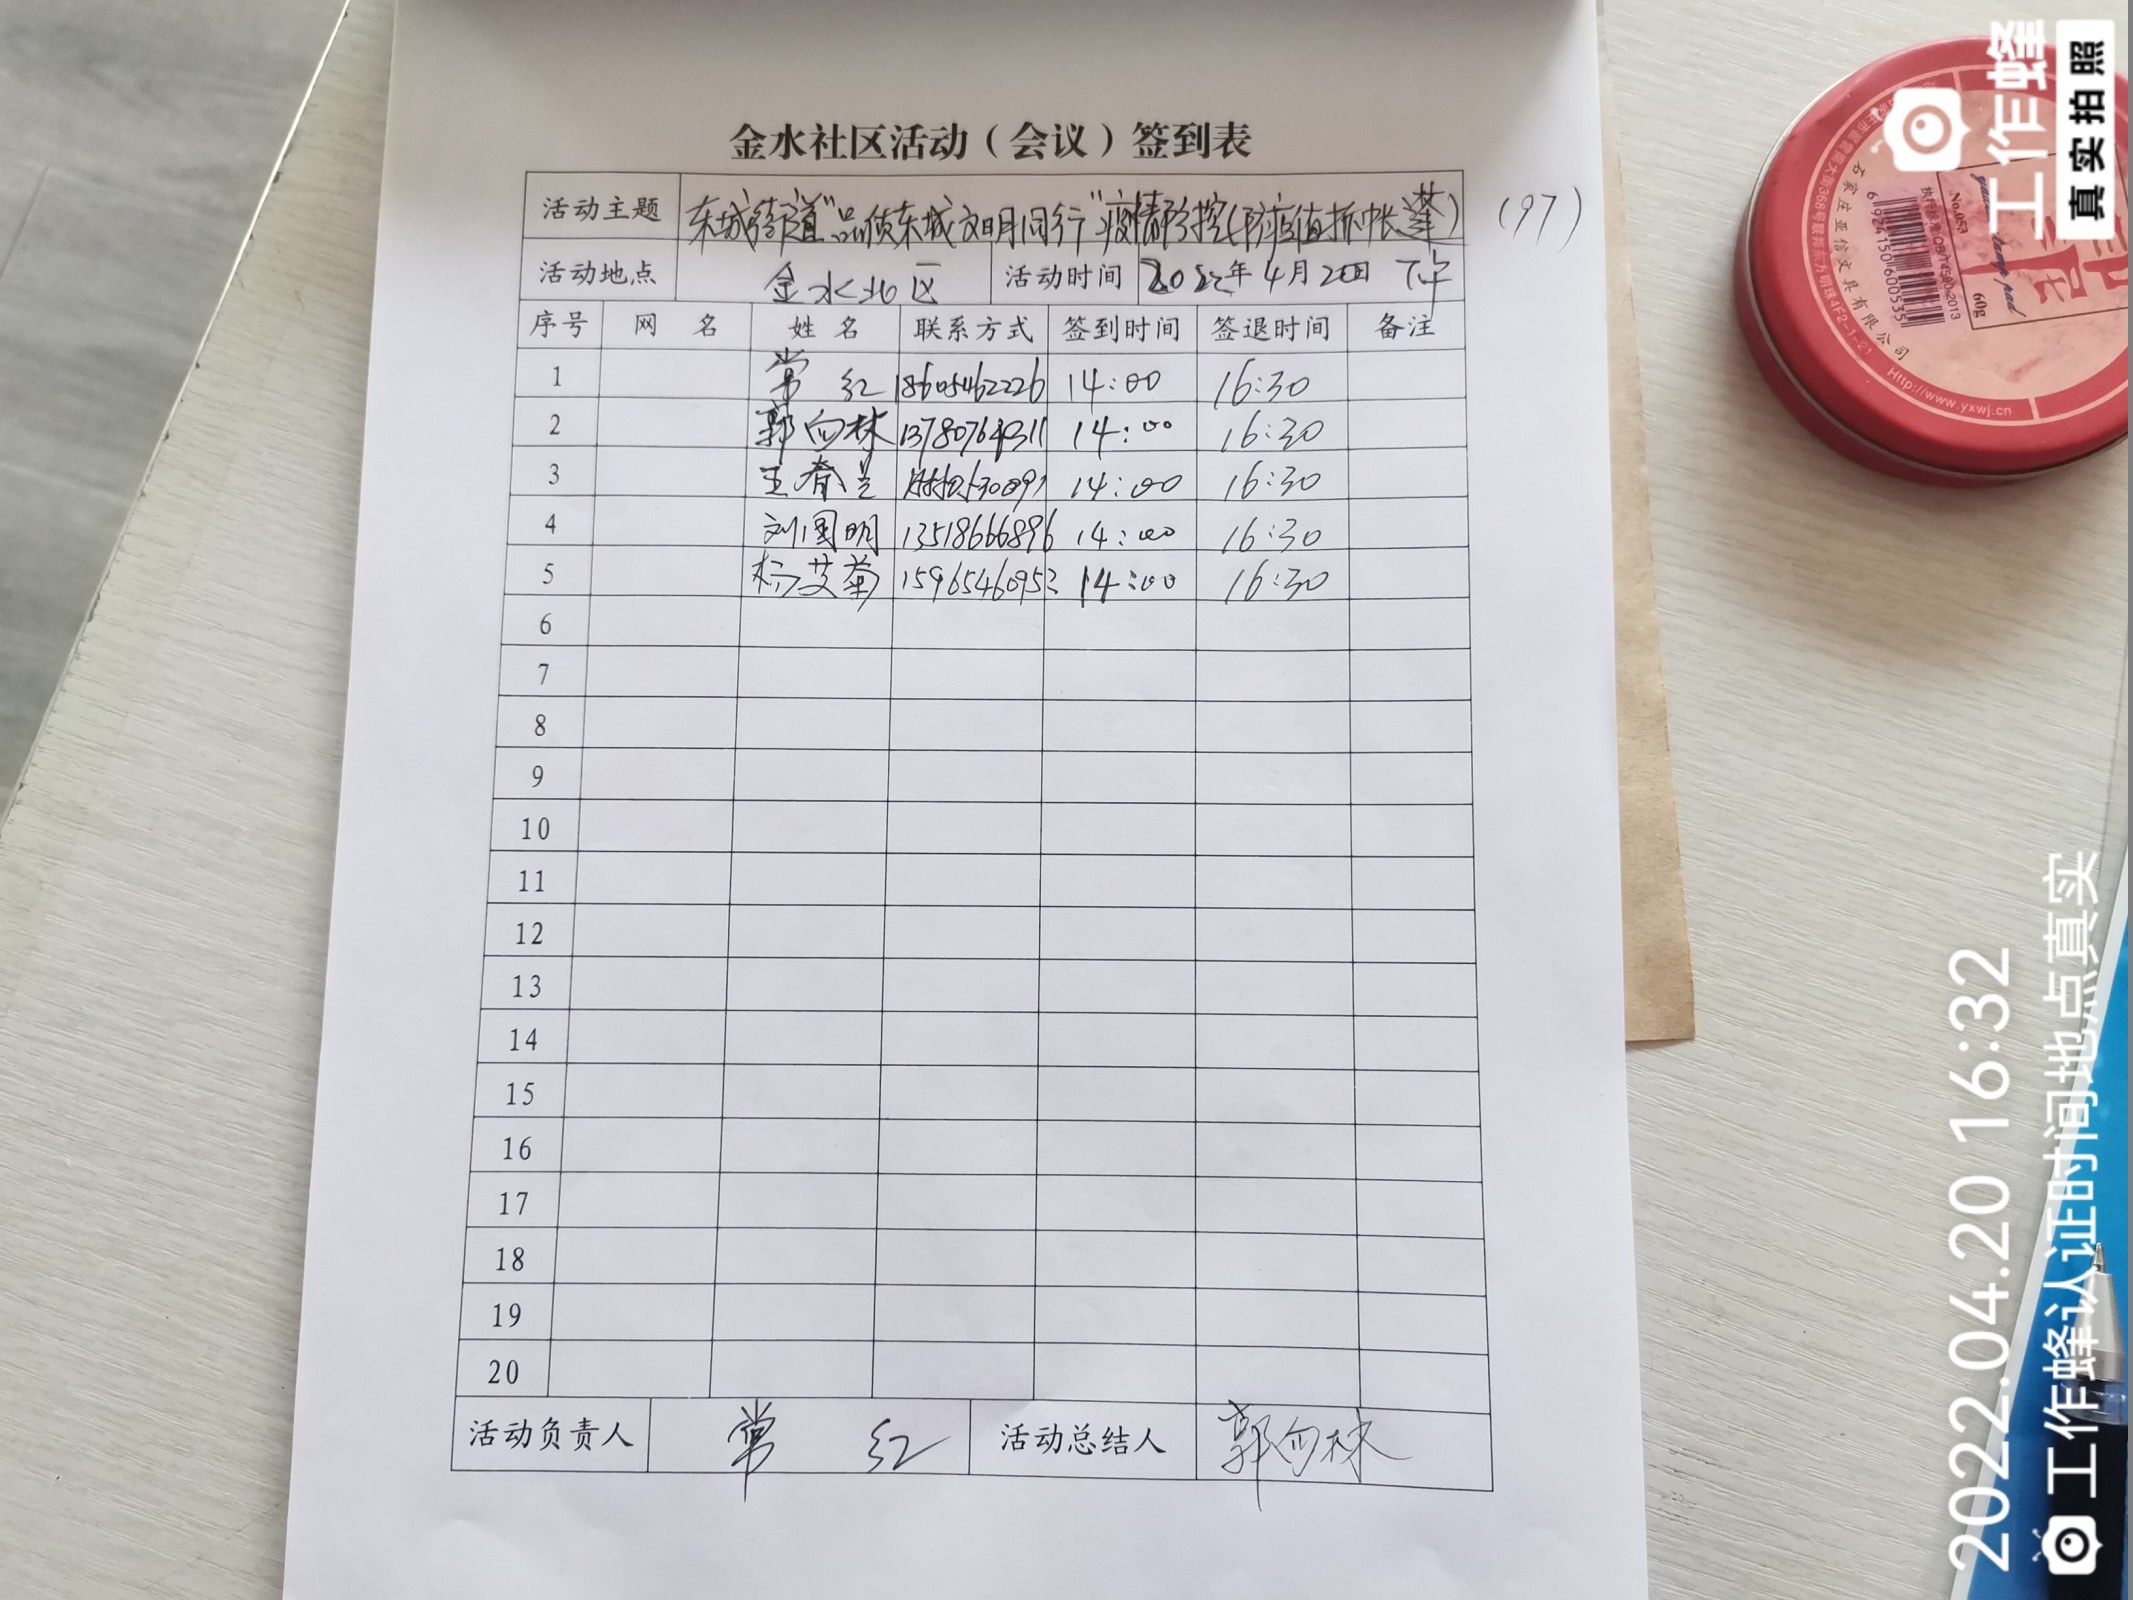 金水社区活动（会议）签到表
活动主题 东城街道“品质东城文明同行”疫情防控(防疫值抓帐篷) (97)
活动地点 金水北区 活动时间 2022年4月20日 下午
序号 网 名 姓 名 联系方式 签到时间 签退时间 备注
1 常 红 18605462226 14:00 16:30
2 郭向林 13780764311 14:00 16:30
3 王春兰 14:00 16:30
4 刘国明 13518666896 14:00 16:30
5 杨艾菊 15965460952 14:00 16:30
6
7
8
9
10
11
12
13
14
15
16
17
18
19
20
活动负责人 常 红 活动总结人 郭向林
工作蜂
真实拍照
No.053
60g
6924150600535
石家庄亚信文具有限公司
Http://www.yxwj.cn
2022.04.20 16:32
工作蜂认证时间地点真实